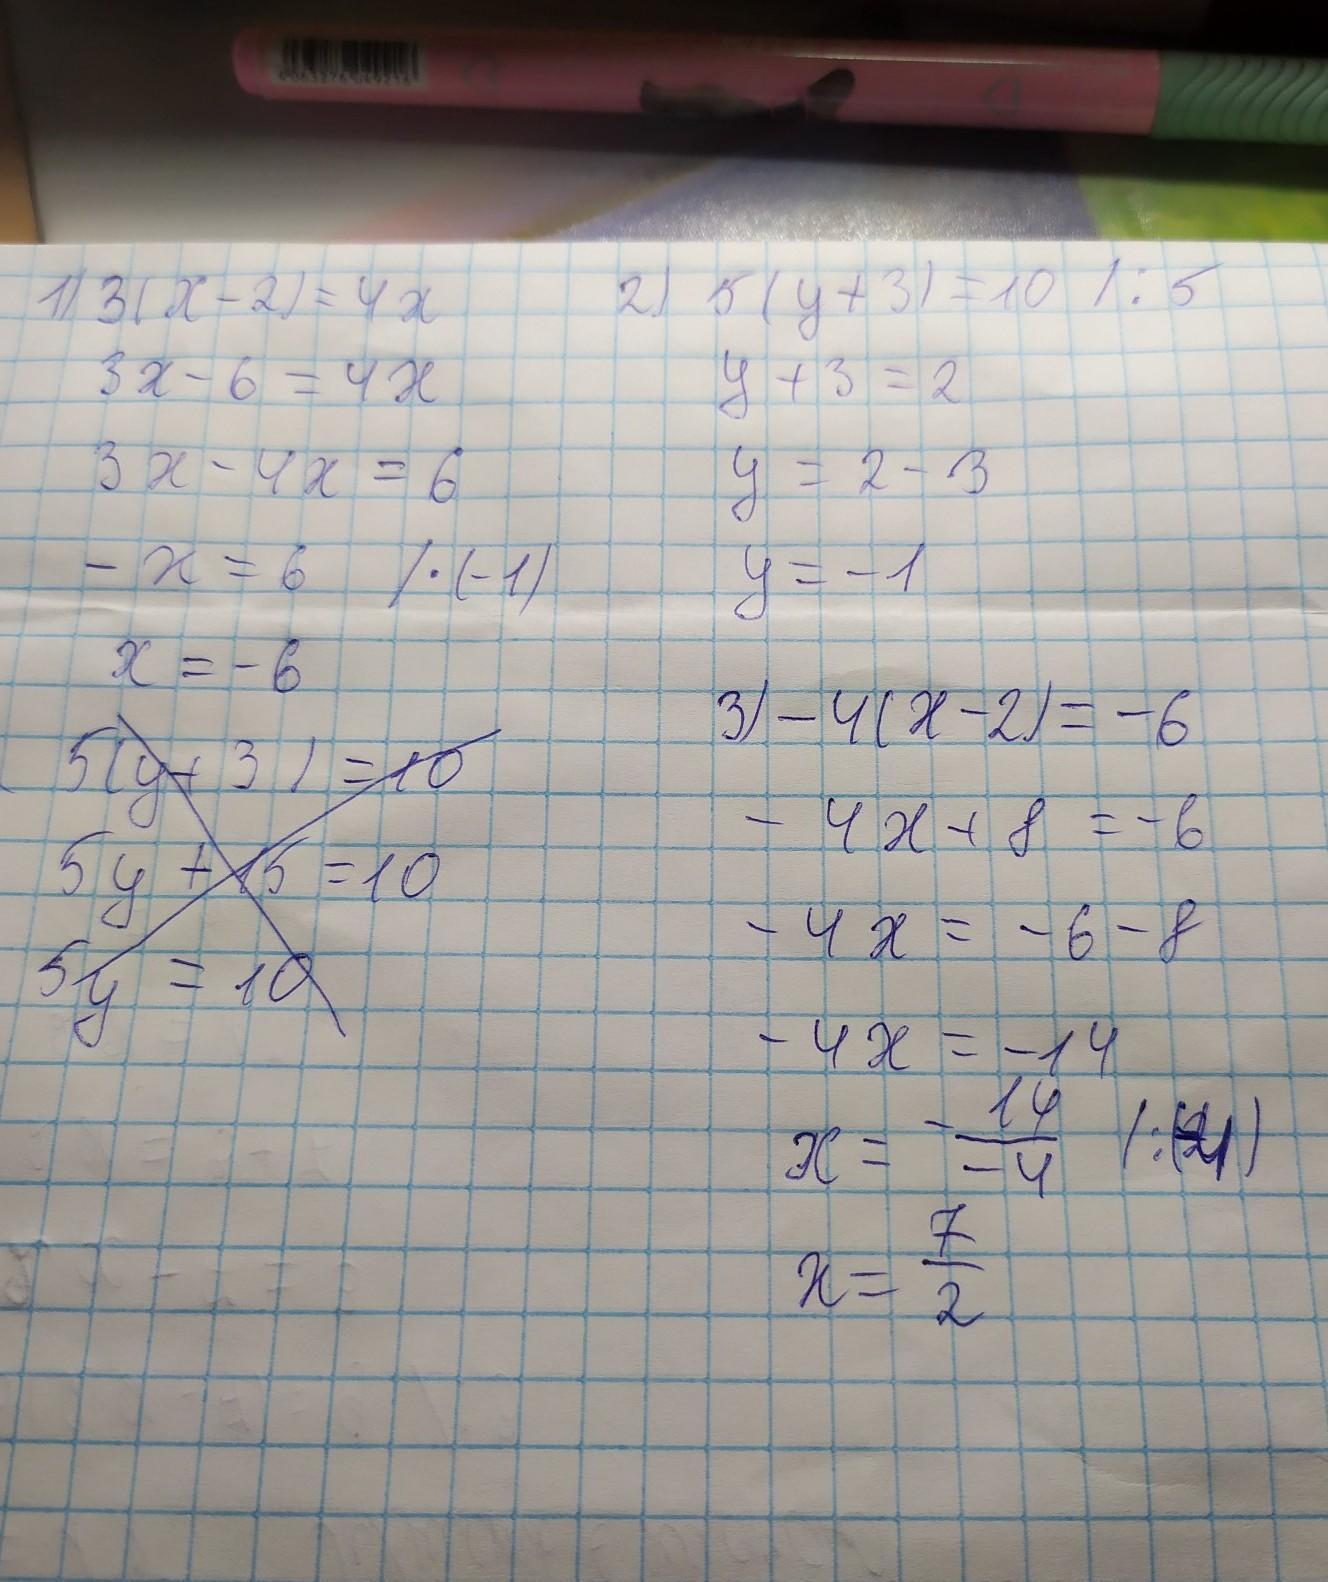 1) 3(x-2)=4x
3x-6=4x
3x-4x=6
-x=6 /·(-1)
x=-6
5(y+3)=10
5y+15=10
5y=10
2) 5(y+3)=10 /:5
y+3=2
y=2-3
y=-1
3) -4(x-2)=-6
-4x+8=-6
-4x=-6-8
-4x=-14
x=-14/-4
x=7/2